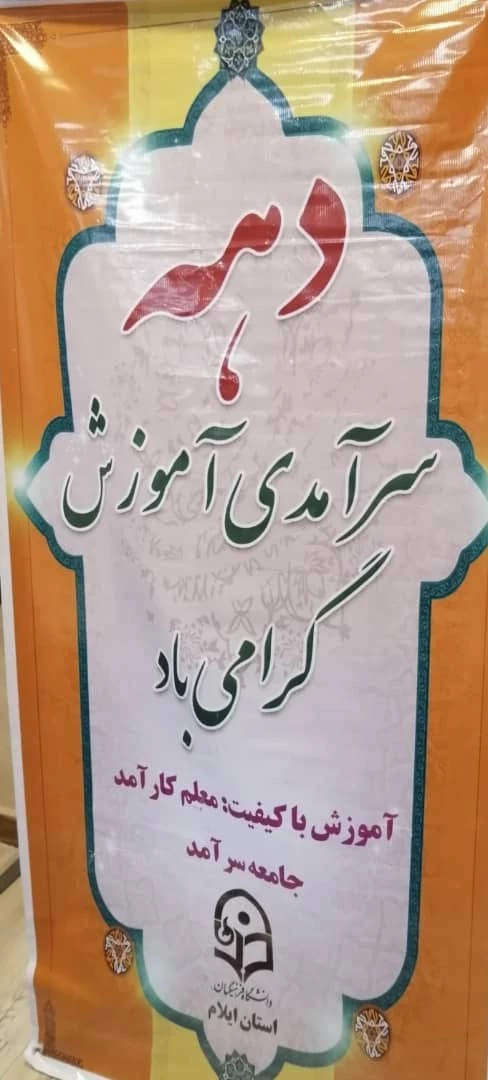 دهه
سرآمدی آموزش
گرامی باد
آموزش با کیفیت: معلم کارآمد
جامعه سرآمد
دانشگاه فرهنگیان
استان ایلام